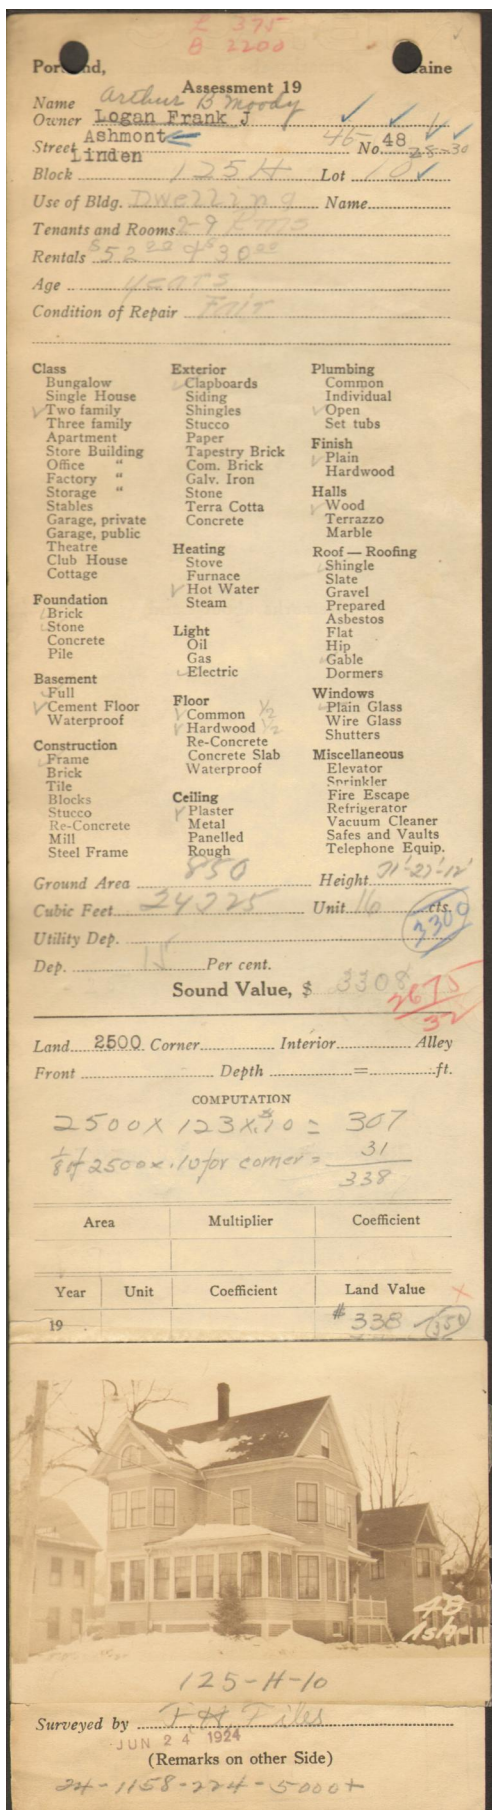 L 375
B 2200
Portland, Maine
Assessment 19
Name Arthur B Moody
Owner Logan Frank J
Street Ashmont 46 48 No. 28-30
Linden
Block 125 H Lot 10
Use of Bldg. Dwelling Name
Tenants and Rooms 2 9 Rms
Rentals $52.00 & $30.00
Age years
Condition of Repair Fair
Class
Bungalow
Single House
Two family
Three family
Apartment
Store Building
Office "
Factory "
Storage "
Stables
Garage, private
Garage, public
Theatre
Club House
Cottage
Foundation
Brick
Stone
Concrete
Pile
Basement
Full
Cement Floor
Waterproof
Construction
Frame
Brick
Tile
Blocks
Stucco
Re-Concrete
Mill
Steel Frame
Exterior
Clapboards
Siding
Shingles
Stucco
Paper
Tapestry Brick
Com. Brick
Galv. Iron
Stone
Terra Cotta
Concrete
Heating
Stove
Furnace
Hot Water
Steam
Light
Oil
Gas
Electric
Floor
Common 1/2
Hardwood 1/2
Re-Concrete
Concrete Slab
Waterproof
Ceiling
Plaster
Metal
Panelled
Rough
Plumbing
Common
Individual
Open
Set tubs
Finish
Plain
Hardwood
Halls
Wood
Terrazzo
Marble
Roof — Roofing
Shingle
Slate
Gravel
Prepared
Asbestos
Flat
Hip
Gable
Dormers
Windows
Plain Glass
Wire Glass
Shutters
Miscellaneous
Elevator
Sprinkler
Fire Escape
Refrigerator
Vacuum Cleaner
Safes and Vaults
Telephone Equip.
Ground Area 850 Height
Cubic Feet 24225 Unit 16 cts.
3300
Utility Dep.
Dep. 15 Per cent.
Sound Value, $ 3308
2675
32
Land 2500 Corner Interior Alley
Front Depth = ft.
COMPUTATION
2500 x 123 x .10 = 307
1/8 of 2500 x .10 for corner = 31
338
Area Multiplier Coefficient
Year Unit Coefficient Land Value
19 $ 338 350
48
Ash
125-H-10
Surveyed by F. H. Files
JUN 24 1924
(Remarks on other Side)
24-1158-224-5000+